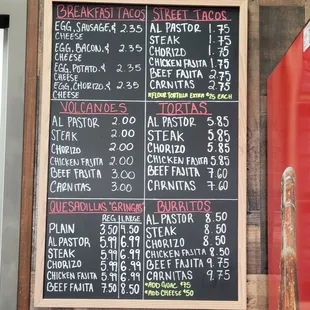 BREAKFAST TACOS
EGG, SAUSAGE, & 2.35
CHEESE
EGG, BACON, & 2.35
CHEESE
EGG, POTATO & 2.35
CHEESE
EGG, CHORIZO & 2.35
CHEESE
STREET TACOS
AL PASTOR 1.75
STEAK 1.75
CHORIZO 1.75
CHICKEN FAJITA 1.75
BEEF FAJITA 2.75
CARNITAS 2.75
*FLOUR TORTILLA EXTRA $.25 EACH
VOLCANOES
AL PASTOR 2.00
STEAK 2.00
CHORIZO 2.00
CHICKEN FAJITA 2.00
BEEF FAJITA 3.00
CARNITAS 3.00
TORTAS
AL PASTOR 5.85
STEAK 5.85
CHORIZO 5.85
CHICKEN FAJITA 5.85
BEEF FAJITA 7.60
CARNITAS 7.60
QUESADILLAS "GRINGAS"
REG. LARGE
PLAIN 3.50 4.50
AL PASTOR 5.99 6.99
STEAK 5.99 6.99
CHORIZO 5.99 6.99
CHICKEN FAJITA 5.99 6.99
BEEF FAJITA 7.50 8.50
BURRITOS
AL PASTOR 8.50
STEAK 8.50
CHORIZO 8.50
CHICKEN FAJITA 8.50
BEEF FAJITA 9.75
CARNITAS 9.75
*ADD GUAC $.75
*ADD CHEESE $.50